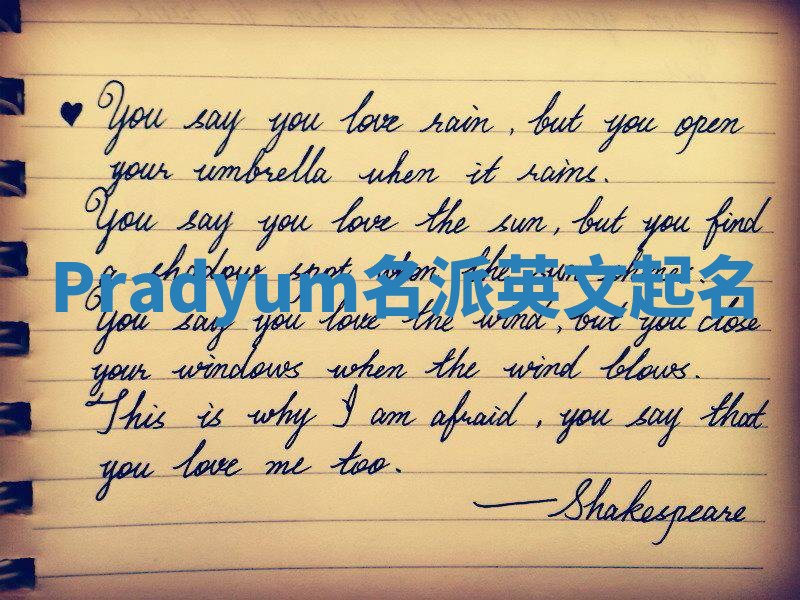 ♥ You say you love rain, but you open
your umbrella when it rains.
You say you love the sun, but you find
a shadow spot when the sun shines.
Pradyum名派英文起名
You say you love the wind, but you close
your windows when the wind blows.
This is why I am afraid, you say that
you love me too.
— Shakespeare